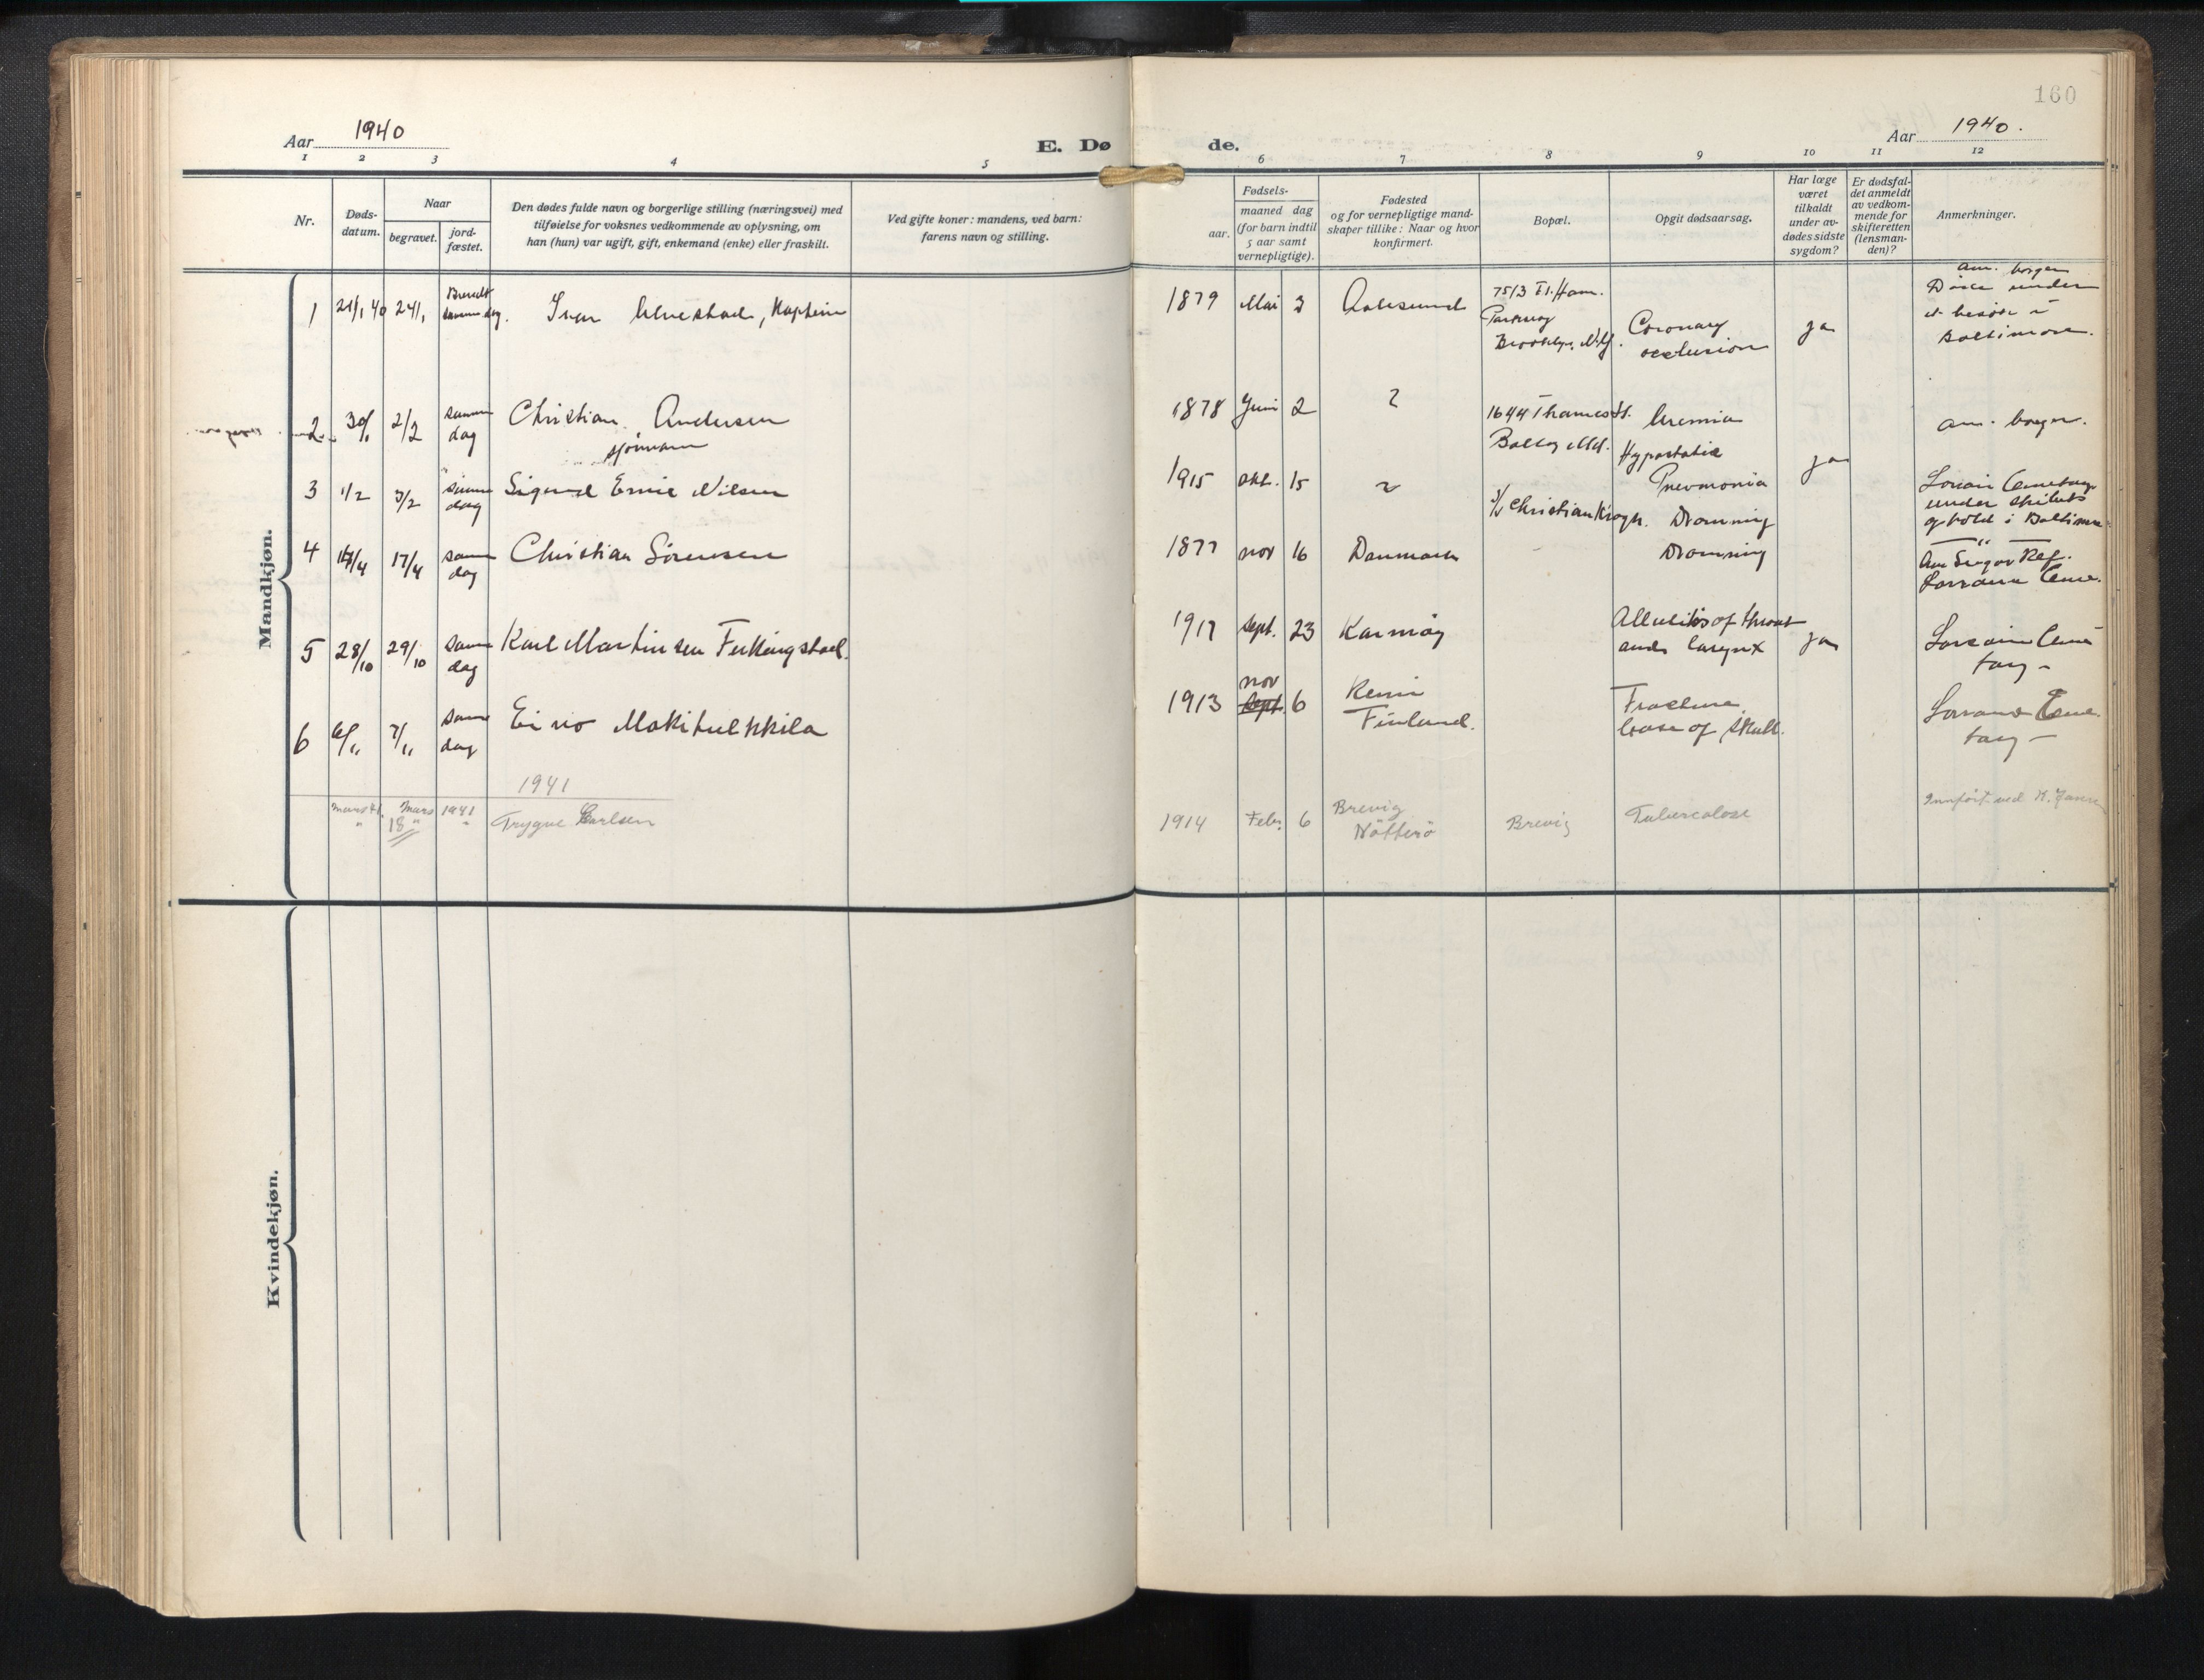 160
Aar 1940
E. Dø
de.
Aar 1940.
1 2 3 4 5 6 7 8 9 10 11 12
Nr.
Døds-
datum.
Naar
begravet.
jord-
fæstet.
Den dødes fulde navn og borgerlige stilling (næringsvei) med
tilføielse for voksnes vedkommende av oplysning, om
han (hun) var ugift, gift, enkemand (enke) eller fraskilt.
Ved gifte koner: mandens, ved barn:
farens navn og stilling.
Fødsels-
aar.
maaned dag
(for barn indtil
5 aar samt
vernepligtige).
Fødested
og for vernepligtige mand-
skaper tillike: Naar og hvor
konfirmert.
Bopæl.
Opgit dødsaarsag.
Har læge
været
tilkaldt
under av-
dødes sidste
sygdom?
Er dødsfal-
det anmeldt
av vedkom-
mende for
skifteretten
(lensman-
den)?
Anmerkninger.
Mandkjøn.
1 21/1 40 24/1
Brendt
samme dag.
Ivar Ulvestad, Kaptein
1879 Mai 3 Aalesund
7513 Ft. Ham.
Parkway
Brooklyn, N.Y.
Coronary
occlusion
ja
am. borger
Døde under
et besøk i
Baltimore.
2 30/1 2/2
samme
dag
Christian Andersen
sjømann
1878 Juni 2 ?
1644 Thames St.
Balto, Md.
Uremia
am. borger.
3 1/2 3/2
samme
dag
Sigurd Ernie Nilsen
1915 okt. 15 ?
S/S Christian Krogh.
Hypostatic
Pneumonia
Drowning
ja
Lorain Cemetary
under skibets
ophold i Baltimore
4 14/4 17/4
samme
dag
Christian Sörensen
1877 nov 16 Danmark
Drowning
Am Sugar Ref.
Lorraine Ceme.
5 28/10 29/10
samme
dag
Karl Martinsen Ferkingstad.
1917 sept. 23 Karmöy
of throat
and larynx
ja
Lorraine Ceme
tary -
6 6/11 7/11
samme
dag
Eino Makihulkkila
1913 nov sept. 6
Kemi
Finland.
Fracture
base of skull.
Lorraine Ceme.
tary -
1941
mars 41. Mars 1941
" 18 " "
Trygve Carlsen
1914 Febr. 6
Brevig
Nötterö
Brevig
Tuberculose
Innført ved H. Jansen
Kvindekjøn.